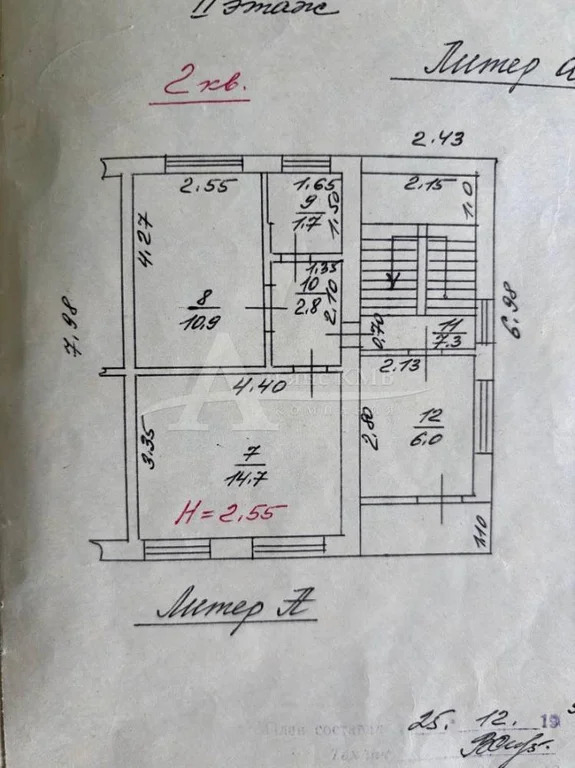 II этаж
Литер а
2 кв.
2.43
2.55
1.65
2.15
1.0
9
1.7
1.50
4.27
1.35
10
2.8
2.10
8
10.9
7.98
6.98
0.70
7.3
2.13
4.40
2.80
12
6.0
3.35
7
14.7
H=2.55
1.10
Литер А
План составил
25. 12. 19